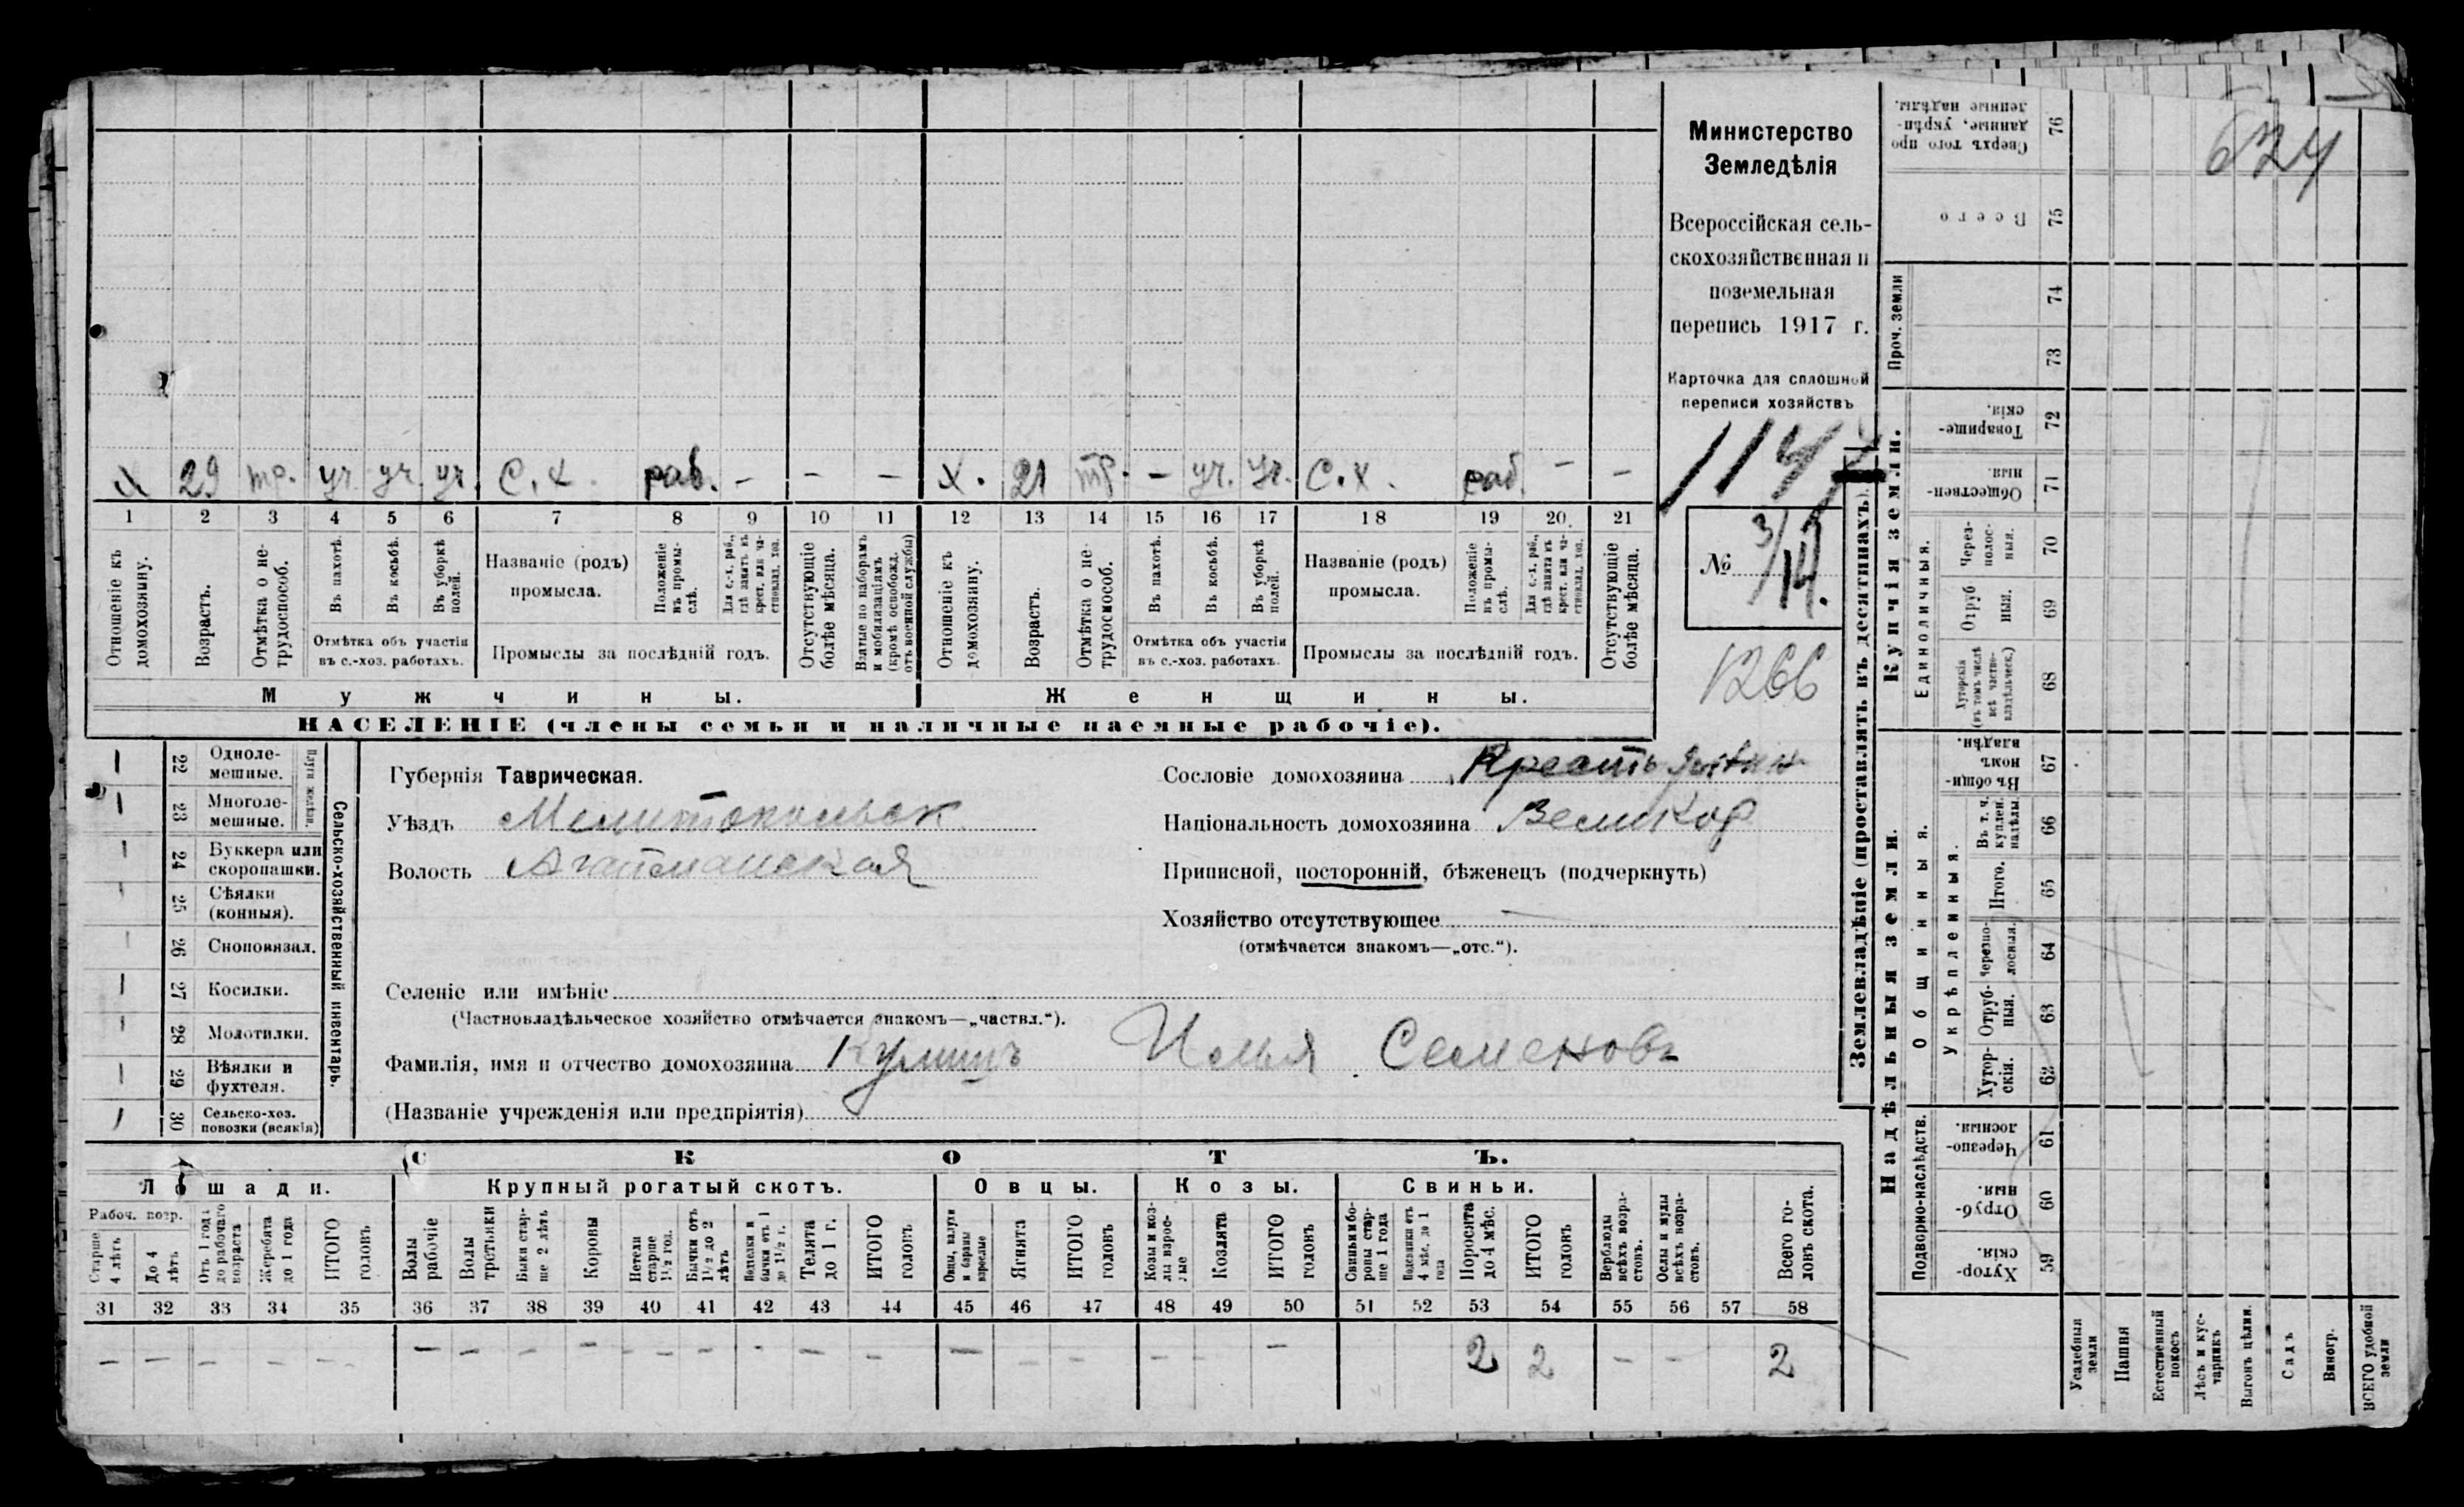 Министерство
Земледѣлія
Всероссійская сель-
скохозяйственная и
поземельная
перепись 1917 г.
Карточка для сплошной
переписи хозяйствъ
114
№ 3/14.
1266
624
х 29 тр. уч. уч. уч. С. х. раб. - - - х. 21 тр. - уч. уч. С. х. раб. - -
1 2 3 4 5 6 7 8 9 10 11 12 13 14 15 16 17 18 19 20. 21
Отношеніе къ домохозяину.
Возрастъ.
Отмѣтка о не-трудоспособ.
Въ пахотѣ.
Въ косьбѣ.
Въ уборкѣ полей.
Отмѣтка объ участіи въ с.-хоз. работахъ.
Названіе (родъ) промысла.
Положеніе въ промы-слѣ.
Для с.-х. раб., гдѣ занятъ въ крест. или ча-стновлад. хоз.
Промыслы за послѣдній годъ.
Отсутствующіе болѣе мѣсяца.
Взятые по наборамъ и мобилизаціямъ (кромѣ освобожд. отъ военной службы)
Отношеніе къ домохозяину.
Возрастъ.
Отмѣтка о не-трудоспособ.
Въ пахотѣ.
Въ косьбѣ.
Въ уборкѣ полей.
Отмѣтка объ участіи въ с.-хоз. работахъ.
Названіе (родъ) промысла.
Положеніе въ промы-слѣ.
Для с.-х. раб., гдѣ заняты въ крест. или ча-стновлад. хоз.
Промыслы за послѣдній годъ.
Отсутствующіе болѣе мѣсяца.
Мужчины. Женщины.
НАСЕЛЕНІЕ (члены семьи и наличные наемные рабочіе).
Сельско-хозяйственный инвентарь.
Плуги желѣзн.
22 Одноле-мешные.
23 Многоле-мешные.
24 Буккера или скоропашки.
25 Сѣялки (конныя).
26 Сноповязал.
27 Косилки.
28 Молотилки.
29 Вѣялки и фухтеля.
30 Сельско-хоз. повозки (всякія)
Губернія Таврическая.
Уѣздъ Мелитопольск
Волость Агайманская
Сословіе домохозяина Крестьянин
Національность домохозяина Великор
Приписной, посторонній, бѣженецъ (подчеркнуть)
Хозяйство отсутствующее
(отмѣчается знакомъ—„отс.“).
Селеніе или имѣніе
(Частновладѣльческое хозяйство отмѣчается знакомъ—„частвл.“).
Фамилія, имя и отчество домохозяина Илья Семеновъ
(Названіе учрежденія или предпріятія)
СКОТЪ.
Лошади. Крупный рогатый скотъ. Овцы. Козы. Свиньи.
Рабоч. возр.
Старше 4 лѣтъ
До 4 лѣтъ
Отъ 1 года до рабочаго возраста
Жеребята до 1 года
ИТОГО головъ
Волы рабочіе
Волы третьяки
Быки стар-ше 2 лѣтъ
Коровы
Нетели старше 1½ год.
Бычки отъ 1½ до 2 лѣтъ
Нетелки и бычки отъ 1 до 1½ г.
Телята до 1 г.
ИТОГО головъ
Овцы, валухи и бараны взрослые
Ягнята
ИТОГО головъ
Козы и коз-лы взрос-лые
Козлята
ИТОГО головъ
Свиньи и бо-ровы стар-ше 1 года
Подсвинки отъ 4 мѣс. до 1 года
Поросята до 4 мѣс.
ИТОГО головъ
Верблюды всѣхъ возра-стовъ.
Ослы и мулы всѣхъ возра-стовъ.
Всего го-ловъ скота.
31 32 33 34 35 36 37 38 39 40 41 42 43 44 45 46 47 48 49 50 51 52 53 54 55 56 57 58
- - - - - - - - - - - - - - - - - - - - 2 2 - - 2
Землевладѣніе (проставлять въ десятинахъ).
Надѣльныя земли. Купчія земли.
Проч. земли
Сверхъ того про данные, укрѣп-ленные надѣлы. 76
Всего 75
74
73
Товарище-скія. 72
Обществен-ныя. 71
Единоличныя.
Через-полос-ныя. 70
Отруб ныя. 69
Хуторскія (въ томъ числѣ всѣ частно-владѣльческ.) 68
Общинныя.
Въ общи-номъ владѣн. 67
Укрѣпленныя.
Въ т. ч. куплен. надѣлы. 66
Итого. 65
Черезпо-лосныя. 64
Отруб-ныя. 63
Хутор-скія. 62
Подворно-наслѣдств.
Черезпо-лосныя. 61
Отруб-ныя. 60
Хутор-скія. 59
Усадебныя земли
Пашня
Естественный покосъ
Лѣсъ и кус-тарникъ
Выгонъ цѣлин.
Садъ
Виногр.
ВСЕГО удобной земли